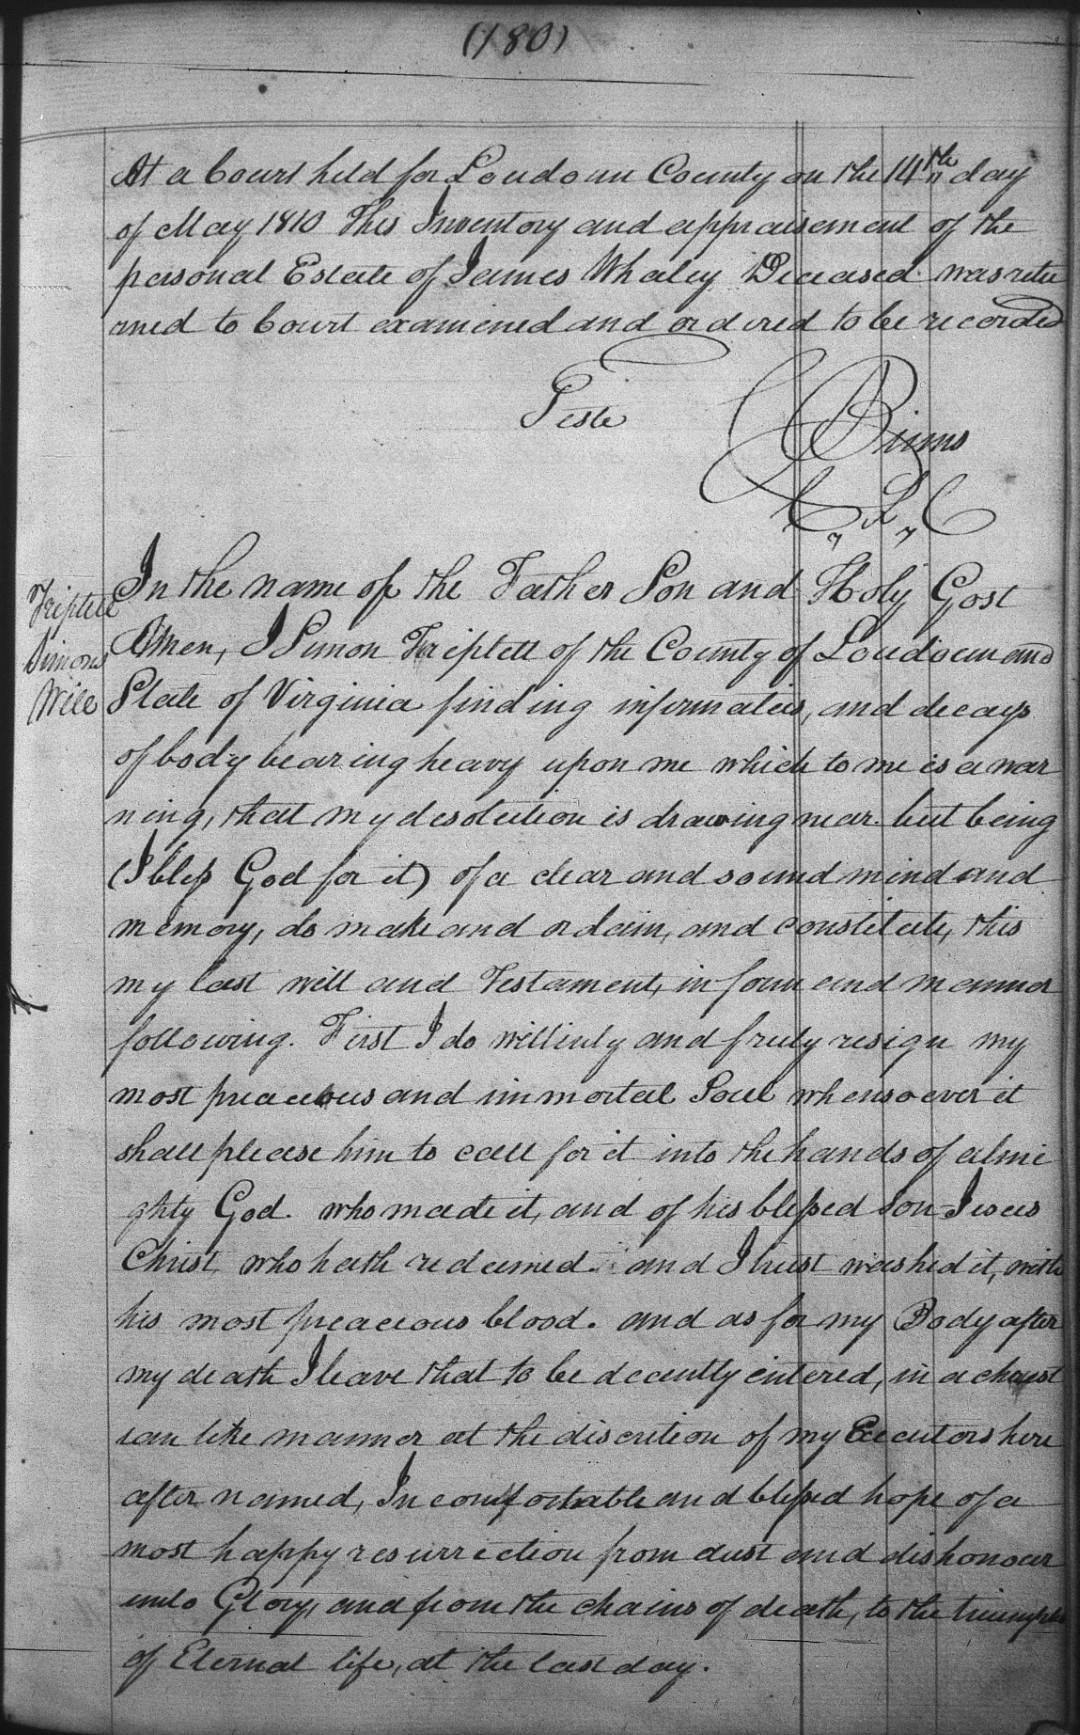 (180)
At a Court held for Loudoun County on the 14th day
of May 1810 This Inventory and appraisement of the
personal Estate of James Whaley Deceased was retu
rned to Court examined and ordered to be recorded
Teste
C Binns
C, L, C
Triplett
Simons
Will
In the name of the Father Son and Holy Gost
Amen, I Simon Triplett of the County of Loudoun and
State of Virginia finding infirmaties, and decays
of body bearing heavy upon me which to me is a war
ning, that my desolution is drawing near but being
(I bless God for it) of a clear and sound mind and
memory, do make and ordain, and constitute, this
my last will and Testament, in form and manner
following. First I do willinly and freely resign my
most preacious and immortal Soul whensoever it
shall please him to call for it into the hands of almi
ghty God. who made it, and of his blessed son Jesus
Christ who hath redeemed and I trust washed it, with
his most preacious blood. and as for my Body after
my death I leave that to be decently entered, in a christ
ian like manner at the discrition of my Executors here
after named, In comfortable and blessed hope of a
most happy resurrection from dust and dishonour
unto Glory, and from the chains of death, to the triumphs
of Eternal life, at the last day.